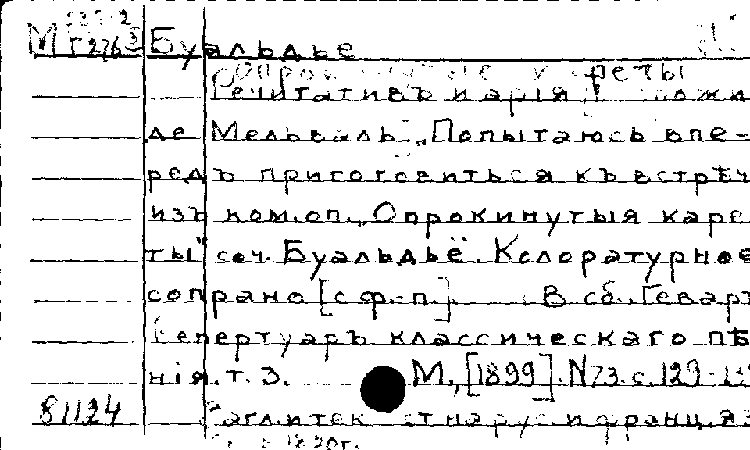 М Г 276 Буальдье
кареты
Речитативъ и ария
де Мельваль „Попытаюсь впе-
редъ приготовиться къ встрѣч
изъ ком.оп. „Опрокинутыя каре
ты" соч. Буальдьё. Колоратурное
сопрано [с ф.-п.] В сб. Гевартъ
Репертуаръ классическаго пѣ
нія. т. 3. М., [1899]. N73. с. 129-
81124 Загл. и текст на рус. и франц. яз